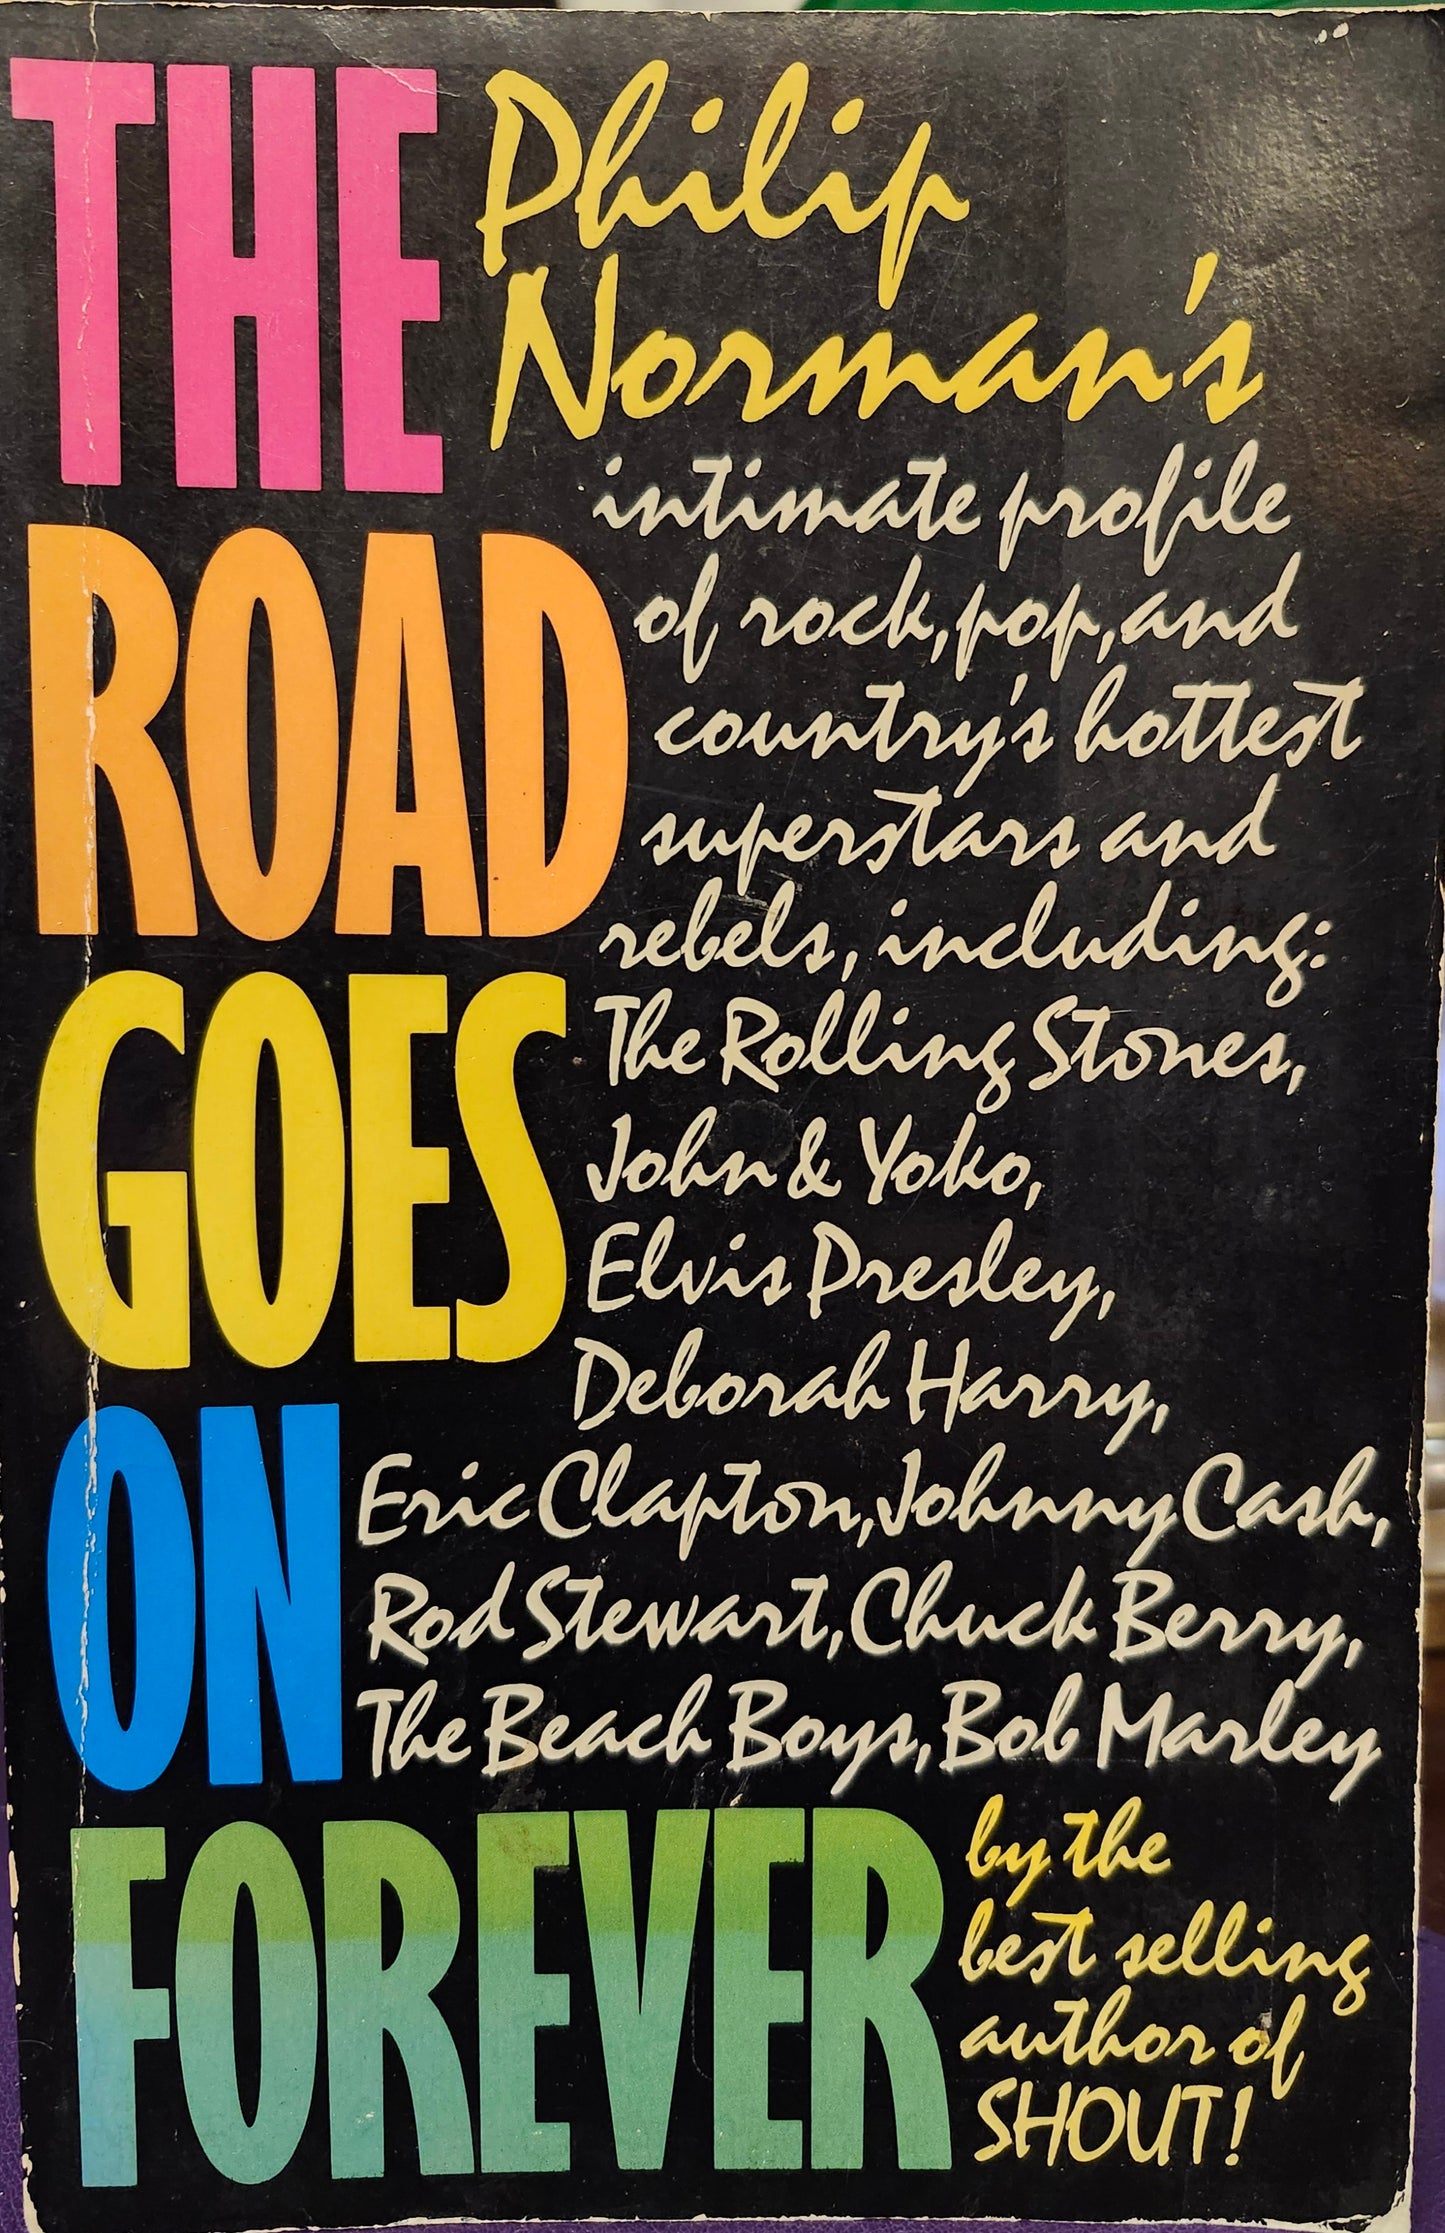 THE
ROAD
GOES
ON
FOREVER
Philip
Norman's
intimate profile
of rock, pop, and
country's hottest
superstars and
rebels, including:
The Rolling Stones,
John & Yoko,
Elvis Presley,
Deborah Harry,
Eric Clapton, Johnny Cash,
Rod Stewart, Chuck Berry,
The Beach Boys, Bob Marley
by the
best selling
author of
SHOUT!